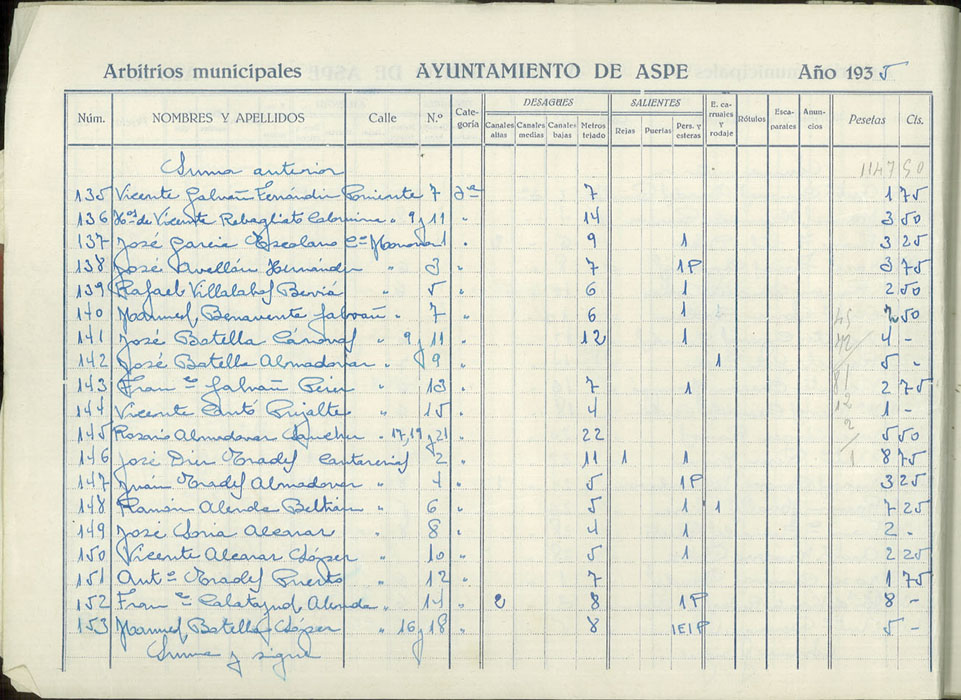 Arbitrios municipales AYUNTAMIENTO DE ASPE Año 1935
Núm. NOMBRES Y APELLIDOS Calle N.º Categoría DESAGUES Canales altas Canales medias Canales bajas Metros tejado SALIENTES Rejas Puertas Pers. y esteras E. carruajes y rodaje Rótulos Escaparates Anuncios Pesetas Cts.
Suma anterior 1147 50
135 Vicente Galvañ Fernández Poniente 7 2ª 7 1 75
136 Hºs de Vicente Rebagliato " 9 y 11 " 14 3 50
137 José García Escolano 1 " 9 1 3 25
138 José Avellán Hernández " 3 " 7 1P 3 75
139 Rafael Villalobos Berviá " 5 " 6 1 2 50
140 Manuel Benavente Galvañ " 7 " 6 1 2 50
141 José Botella Cánovas " 9 y 11 " 12 1 4 -
142 José Botella Almodovar " 9 " 1 5 -
143 Franco Galvañ Pérez " 13 " 7 1 2 75
144 Vicente Cantó Pujalte " 15 " 4 1 -
145 Rosario Almodovar Sánchez " 17, 19 y 21 " 22 5 50
146 José Díez Pradés Cantarerías 2 " 11 1 1 8 75
147 Juan Pradés Almodovar " 4 " 5 1P 3 25
148 Ramón Alenda Beltrán " 6 " 5 1 1 7 25
149 José Soria Alcaraz " 8 " 4 1 2 -
150 Vicente Alcaraz López " 10 " 5 1 2 25
151 Antº Pradés Puerto " 12 " 7 1 75
152 Franco Calatayud Alenda " 14 " 2 8 1P 8 -
153 Manuel Botella López " 16 y 18 " 8 1E1P 5 -
Suma y sigue